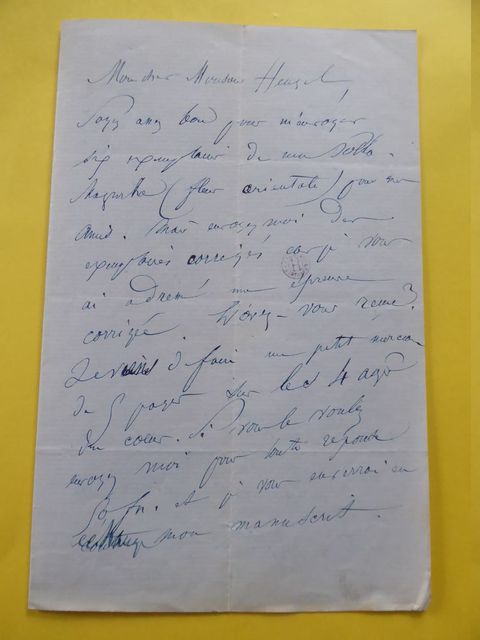 Mon cher Monsieur Heugel,
Soyez assez bon pour m'envoyer
six exemplaires de ma Polka
Mazurka (fleur orientale) pour mes
amis. Mais envoyez moi des
exemplaires corrigés car je vous
ai adressé une épreuve
corrigée. L'avez-vous reçue?
Je viens de faire un petit morceau
de 5 pages sur les 4 ages
du coeur. Si vous le voulez
envoyez moi pour toute réponse
50 fr. et je vous enverrai en
échange mon manuscrit.